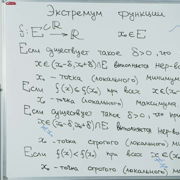 Экстремум функции
f: E ⊂ℝ → ℝ x₀∈E
Если существует такое δ>0, что
x∈(x₀-δ, x₀+δ)∩E выполняется нер-во
x₀ - точка (локального) минимума
Если f(x)≤f(x₀) при всех x∈(x₀-δ
x₀ - точка (локального) максимума
Если существует такое δ>0, что при
x∈(x₀-δ, x₀+δ)∩E выполняется нер-во
x₀ - точка строгого (локального) мини
Если f(x)<f(x₀) при всех x∈(x₀
x₀ - точка строгого (локального)